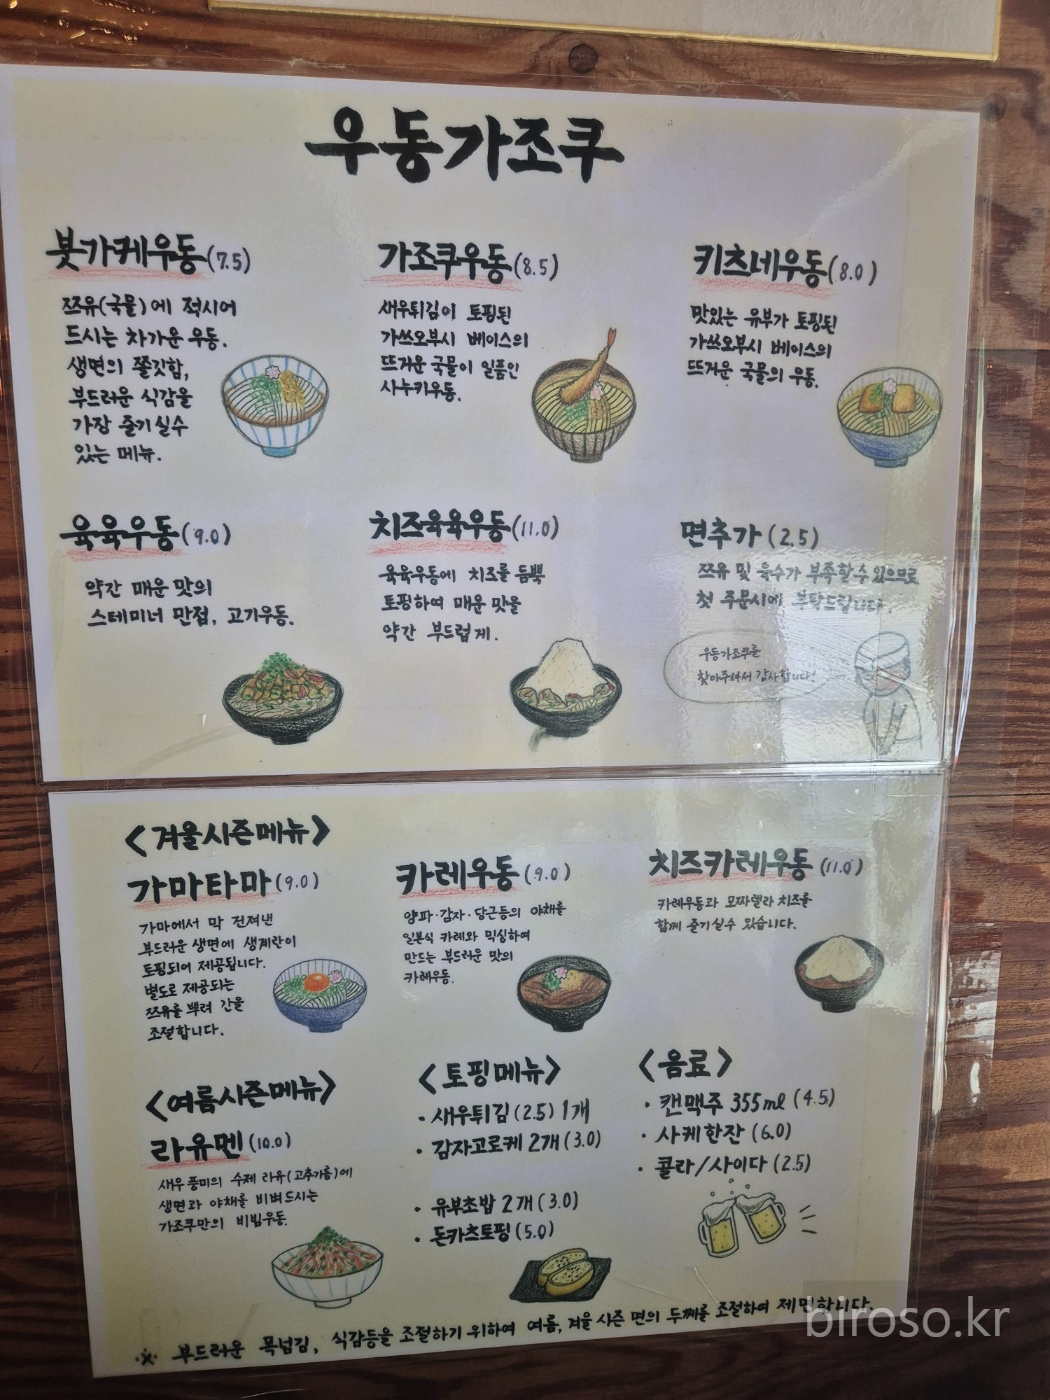 우동가조쿠
붓가케우동(7.5)
쯔유(국물)에 적시어
드시는 차가운 우동.
생면의 쫄깃함,
부드러운 식감을
가장 즐기실수
있는 메뉴.
가조쿠우동(8.5)
새우튀김이 토핑된
가쓰오부시 베이스의
뜨거운 국물이 일품인
사누키우동.
키츠네우동(8.0)
맛있는 유부가 토핑된
가쓰오부시 베이스의
뜨거운 국물의 우동.
육육우동(9.0)
약간 매운 맛의
스테미너 만점, 고기우동.
치즈육육우동(11.0)
육육우동에 치즈를 듬뿍
토핑하여 매운 맛을
약간 부드럽게.
면추가(2.5)
쯔유 및 육수가 부족할수 있으므로
첫 주문시에 부탁드립니다
우동가조쿠를
찾아주셔서 감사합니다!
<겨울시즌메뉴>
가마타마(9.0)
가마에서 막 건져낸
부드러운 생면에 생계란이
토핑되어 제공됩니다.
별도로 제공되는
쯔유를 뿌려 간을
조절합니다.
카레우동(9.0)
양파·감자·당근등의 야채를
일본식 카레와 믹싱하여
만드는 부드러운 맛의
카레우동.
치즈카레우동(11.0)
카레우동과 모짜렐라 치즈를
함께 즐기실수 있습니다.
<여름시즌메뉴>
라유멘(10.0)
새우 풍미의 수제 라유(고추기름)에
생면과 야채를 비벼드시는
가조쿠만의 비빔우동.
<토핑메뉴>
· 새우튀김(2.5) 1개
· 감자고로케 2개(3.0)
· 유부초밥 2개(3.0)
· 돈카츠토핑(5.0)
<음료>
· 캔맥주 355ml (4.5)
· 사케한잔(6.0)
· 콜라/사이다(2.5)
※ 부드러운 목넘김, 식감등을 조절하기 위하여 여름, 겨울 시즌 면의 두께를 조절하여 제면합니다.
biroso.kr